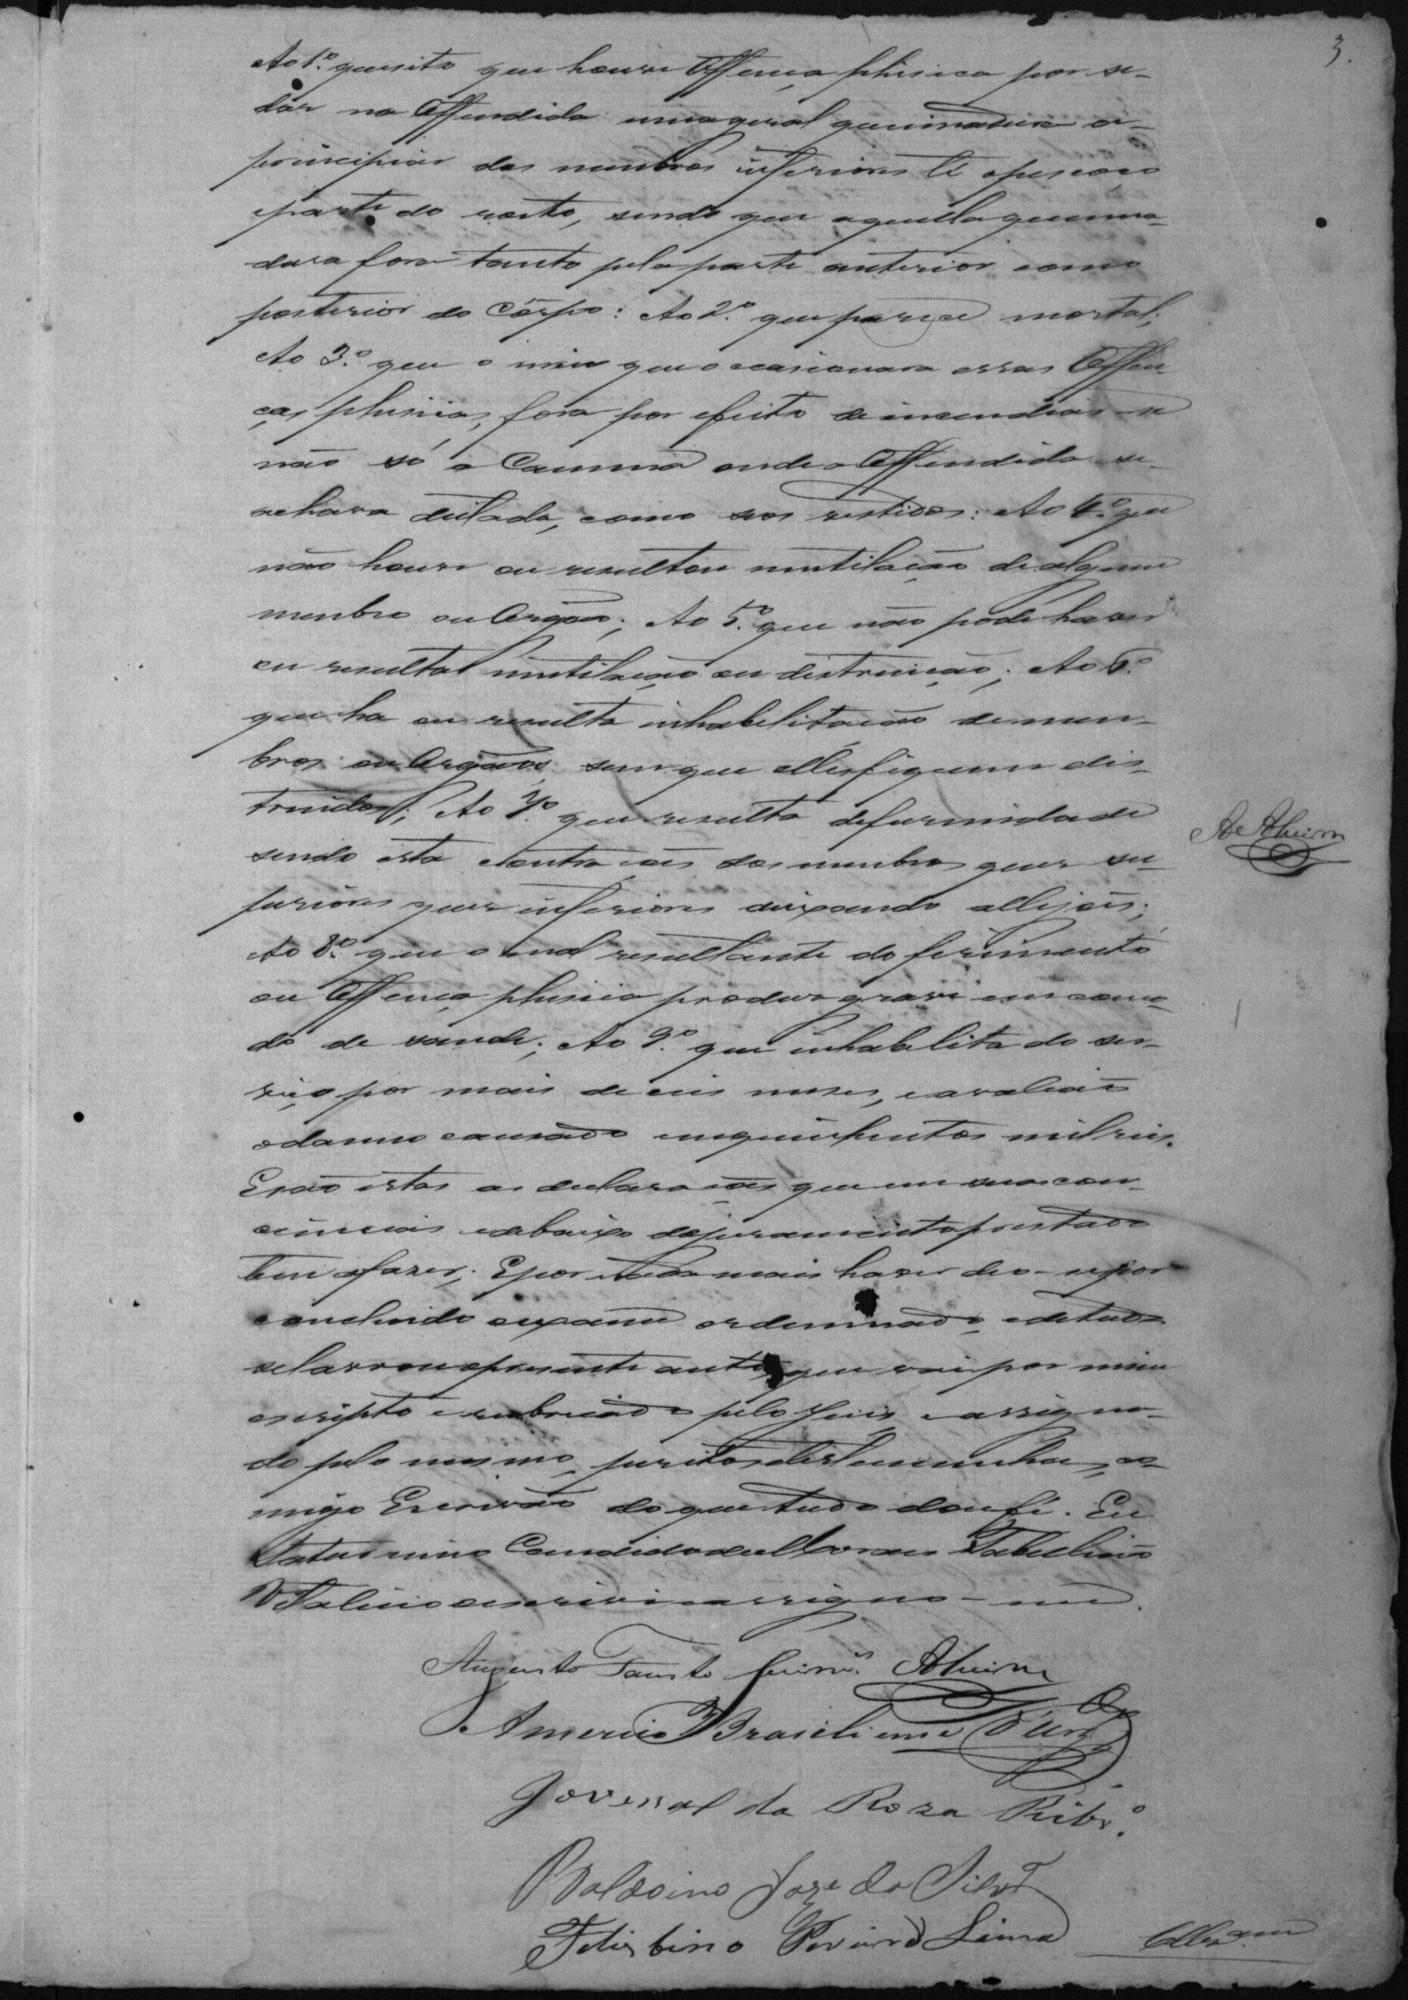 3.
Ao 1.º quesito que houve Offença phisica por se
dar na Offendida uma geral queimadura a
principiar dos membros inferiores té opescoço
eparte do rosto, sendo que aquella queima-
dura fora tanto pela parte anterior como
posterior do Corpo: Ao 2.º que parece mortal;
Ao 3.º que o meio que occasionara essas Offen-
ças phisicas, fora por efeito de incendiar-se
não só a Camma onde a Offendida se
achava deitada, como seos vestidos: Ao 4.º que
não houve ou resultou mutilação de algum
membro ou Orgão; Ao 5.º que não pode haver
ou resultar mutilação ou distruição; Ao 6.º
que ha ou resulta inhabilitação de mem-
bros ou Orgãos sem que elles fiquem dis-
truidos; Ao 7.º que resulta deformidade
sendo esta contrações dos membros quer su-
periores quer inferiores deixando allejões;
Ao 8.º que o mal resultante do ferimento
ou Offença phisica produz grave encomo-
do de saude; Ao 9.º que inhabelita do ser-
viço por mais de seis meses, e avaleão
odanno causado em quinhentos mil reis.
E são estas as declarações que em suas con-
ciencias e debaixo dejuramento prestado
tem afazer; E por nada mais haver deo-se por
concluido o exame ordennado, e de tudo
selavrou opresente auto, que vai por mim
escripto e rubricado pelo Juis, e assigna-
do pelo mesmo, peritos etestemunhas, co-
migo Escrivão do que tudo dou fé. Eu
Saturnino Candido de Moraes Tabelião
Vitalicio o escrivi e assigno-me.
A e Alvim
Augusto Fausto Guim.es Alvim
Americo Brasiliense
Jovenal da Roza Ribr.º
Baldoino Jose da Silva
Felisbino Pereira Lima